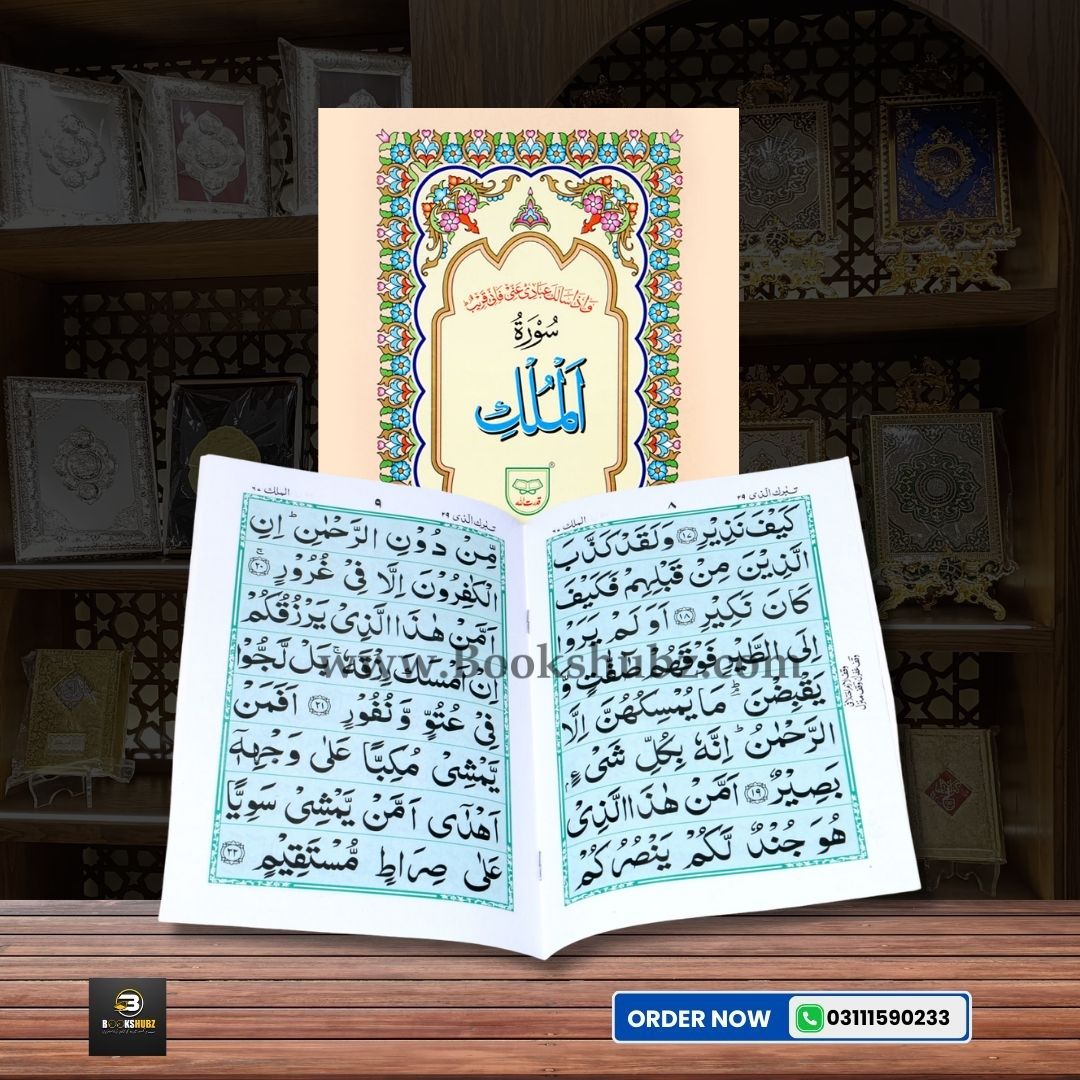 وَاِذَا سَاَلَكَ عِبَادِیْ عَنِّیْ فَاِنِّیْ قَرِیْبٌ
سُوْرَةُ
اَلْمُلْكِ
قدرت اللہ
®
تبٰرك الذی ٢٩
٨
الملك ٦٧
كَيْفَ نَذِيْرِ ﴿١٧﴾ وَلَقَدْ كَذَّبَ
الَّذِيْنَ مِنْ قَبْلِهِمْ فَكَيْفَ
كَانَ نَكِيْرِ ﴿١٨﴾ اَوَلَمْ يَرَوْا
اِلَى الطَّيْرِ فَوْقَهُمْ صٰٓفّٰتٍ وَّ
يَقْبِضْنَ ۘؕ مَا يُمْسِكُهُنَّ اِلَّا
الرَّحْمٰنُ ؕ اِنَّهٗ بِكُلِّ شَیْءٍۭ
بَصِيْرٌ ﴿١٩﴾ اَمَّنْ هٰذَا الَّذِیْ
هُوَ جُنْدٌ لَّكُمْ يَنْصُرُكُمْ
تبٰرك الذی ٢٩
٩
الملك ٦٧
مِّنْ دُوْنِ الرَّحْمٰنِ ؕ اِنِ
الْكٰفِرُوْنَ اِلَّا فِیْ غُرُوْرٍ ۚ ﴿٢٠﴾
اَمَّنْ هٰذَا الَّذِیْ يَرْزُقُكُمْ
اِنْ اَمْسَكَ رِزْقَهٗ ۚ بَلْ لَّجُّوْا
فِیْ عُتُوٍّ وَّنُفُوْرٍ ﴿٢١﴾ اَفَمَنْ
يَّمْشِیْ مُكِبًّا عَلٰی وَجْهِهٖۤ
اَهْدٰۤی اَمَّنْ يَّمْشِیْ سَوِيًّا
عَلٰی صِرَاطٍ مُّسْتَقِيْمٍ ﴿٢٢﴾
www.Bookshubz.com
BOOKSHUBZ
ORDER NOW
03111590233